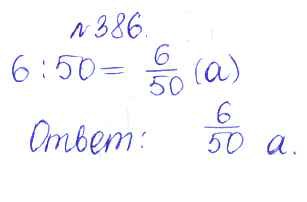 №386.
6 : 50 = 6/50 (а)
Ответ: 6/50 а.